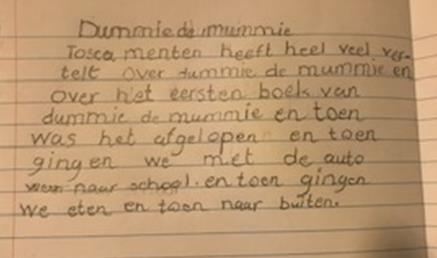 Dummie de mummie
Tosca menten heeft heel veel ver-
telt over dummie de mummie en
over het eersten boek van
dummie de mummie en toen
was het afgelopen en toen
gingen we met de auto
naar school. en toen gingen
we eten en toen naar buiten.